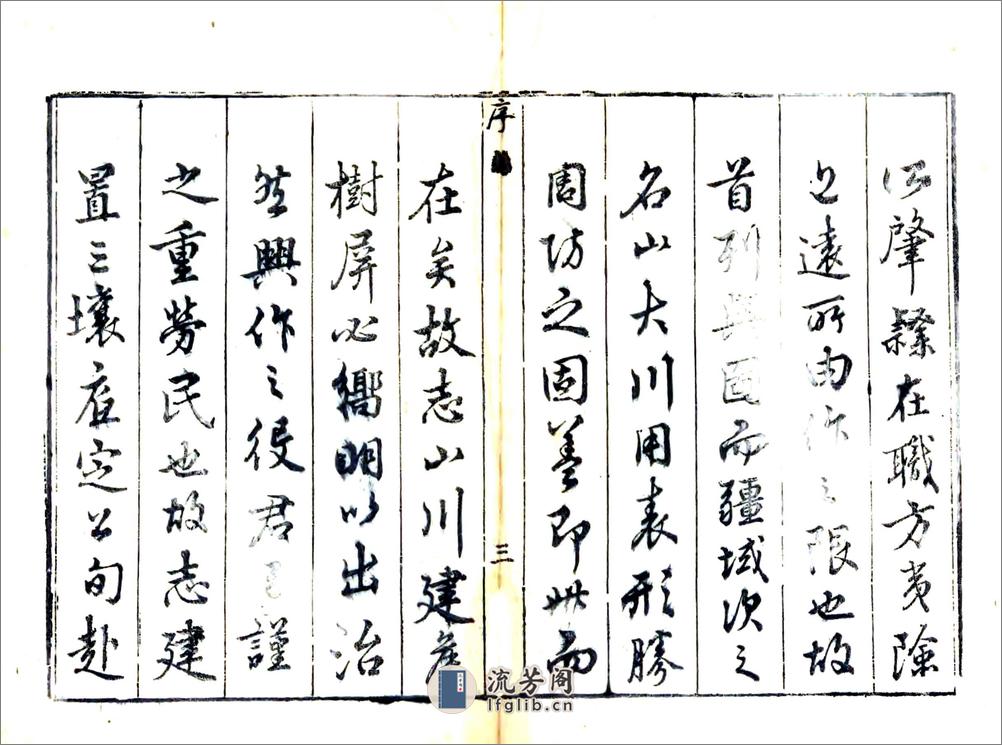 肇在職方夷險
遠所由作之限也故
首列輿圖而疆域次之
名山大川用表形勝
周防之固蓋即此而
序
三
在矣故志山川建
樹屏必嚮明以出治
然興作之役君子謹
之重勞民也故志建
置三壤底定公旬赴
流芳阁
lfglib.cn